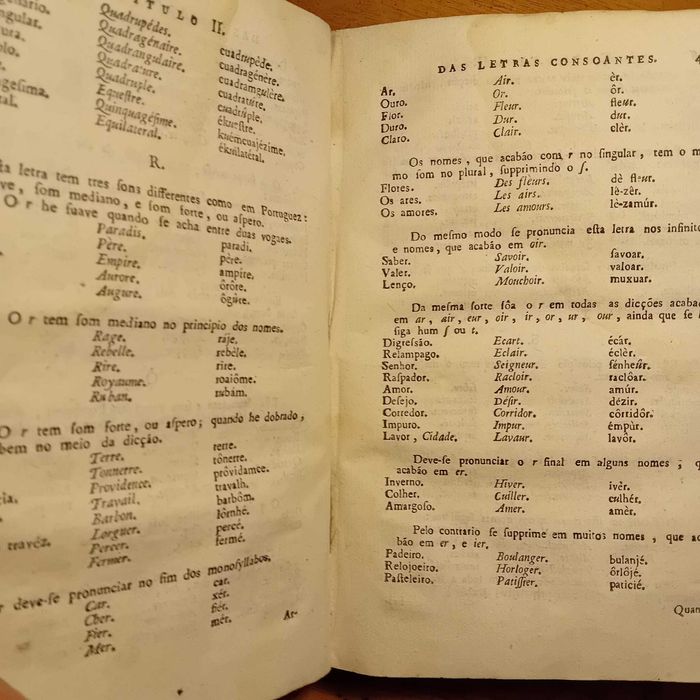 ITULO II.
Quadrupédes. cuadrupéde.
Quadragénaire. cuadragénère.
Quadrangulaire. cuadramgulère.
Quadrature. cuadratúre.
Quadruple. cuadrúple.
Equeſtre. ékueſtre.
Quinquagéſime. kuémcuajézime.
Equilateral. ékuilatéral.
R.
ſta letra tem tres ſons differentes como em Portuguez:
ve, ſom mediano, e ſom forte, ou aſpero.
O r he ſuave quando ſe acha entre duas vogaes.
Paradis. paradi.
Père. pére.
Empire. ampire.
Aurore. ôrôre.
Augure. ôgúre.
O r tem ſom mediano no principio dos nomes.
Rage. raje.
Rebelle. rebèle.
Rire. rire.
Royaume. roaiôme.
Ruban. rubám.
O r tem ſom forte, ou aſpero; quando he dobrado,
bem no meio da dicção.
Terre. terre.
Tonnerre. tônerre.
Providence. próvidamce.
Travail. travalh.
Barbon. barbôm.
Lorguer. lôrnhé.
travéz. Percer. percé.
Fermer. fermé.
r deve-ſe pronunciar no fim dos monoſyllabos.
Car. car.
Cher. xér.
Fier. fiér.
Mer. mér.
Ar-
DAS LETRAS CONSOANTES. 4
Ar. Air. èr.
Ouro. Or. ôr.
Flor. Fleur. fleur.
Duro. Dur. dur.
Claro. Clair. clèr.
Os nomes, que acabão com r no ſingular, tem o m
mo ſom no plural, ſupprimindo o ſ.
Flores. Des fleurs. dè fleur.
Os ares. Les airs. lè-zèr.
Os amores. Les amours. lè-zamúr.
Do meſmo modo ſe pronuncia eſta letra nos infinit
e nomes, que acabão em oir.
Saber. Savoir. ſavoar.
Valer. Valoir. valoar.
Lenço. Mouchoir. muxuar.
Da meſma ſorte ſôa o r em todas as dicções acabad
em ar, air, eur, oir, ir, or, ur, our, ainda que ſe l
ſiga hum ſ ou t.
Digreſsão. Ecart. écár.
Relampago. Eclair. éclèr.
Senhor. Seigneur. ſénheúr.
Raſpador. Racloir. raclôar.
Amor. Amour. amúr.
Deſejo. Déſir. dézir.
Corredor. Corridor. côrridôr.
Impuro. Impur. émpùr.
Lavor, Cidade. Lavaur. lavôr.
Deve-ſe pronunciar o r final em alguns nomes; q
acabão em er.
Inverno. Hiver. ivèr.
Colher. Cuiller. culhér.
Amargoſo. Amer. amèr.
Pelo contrario ſe ſupprime em muitos nomes, que ac
bão em er, e ier.
Padeiro. Boulanger. bulanjé.
Relojoeiro. Horloger. ôrlôjé.
Paſteleiro. Patiſſier. paticié.
Quan